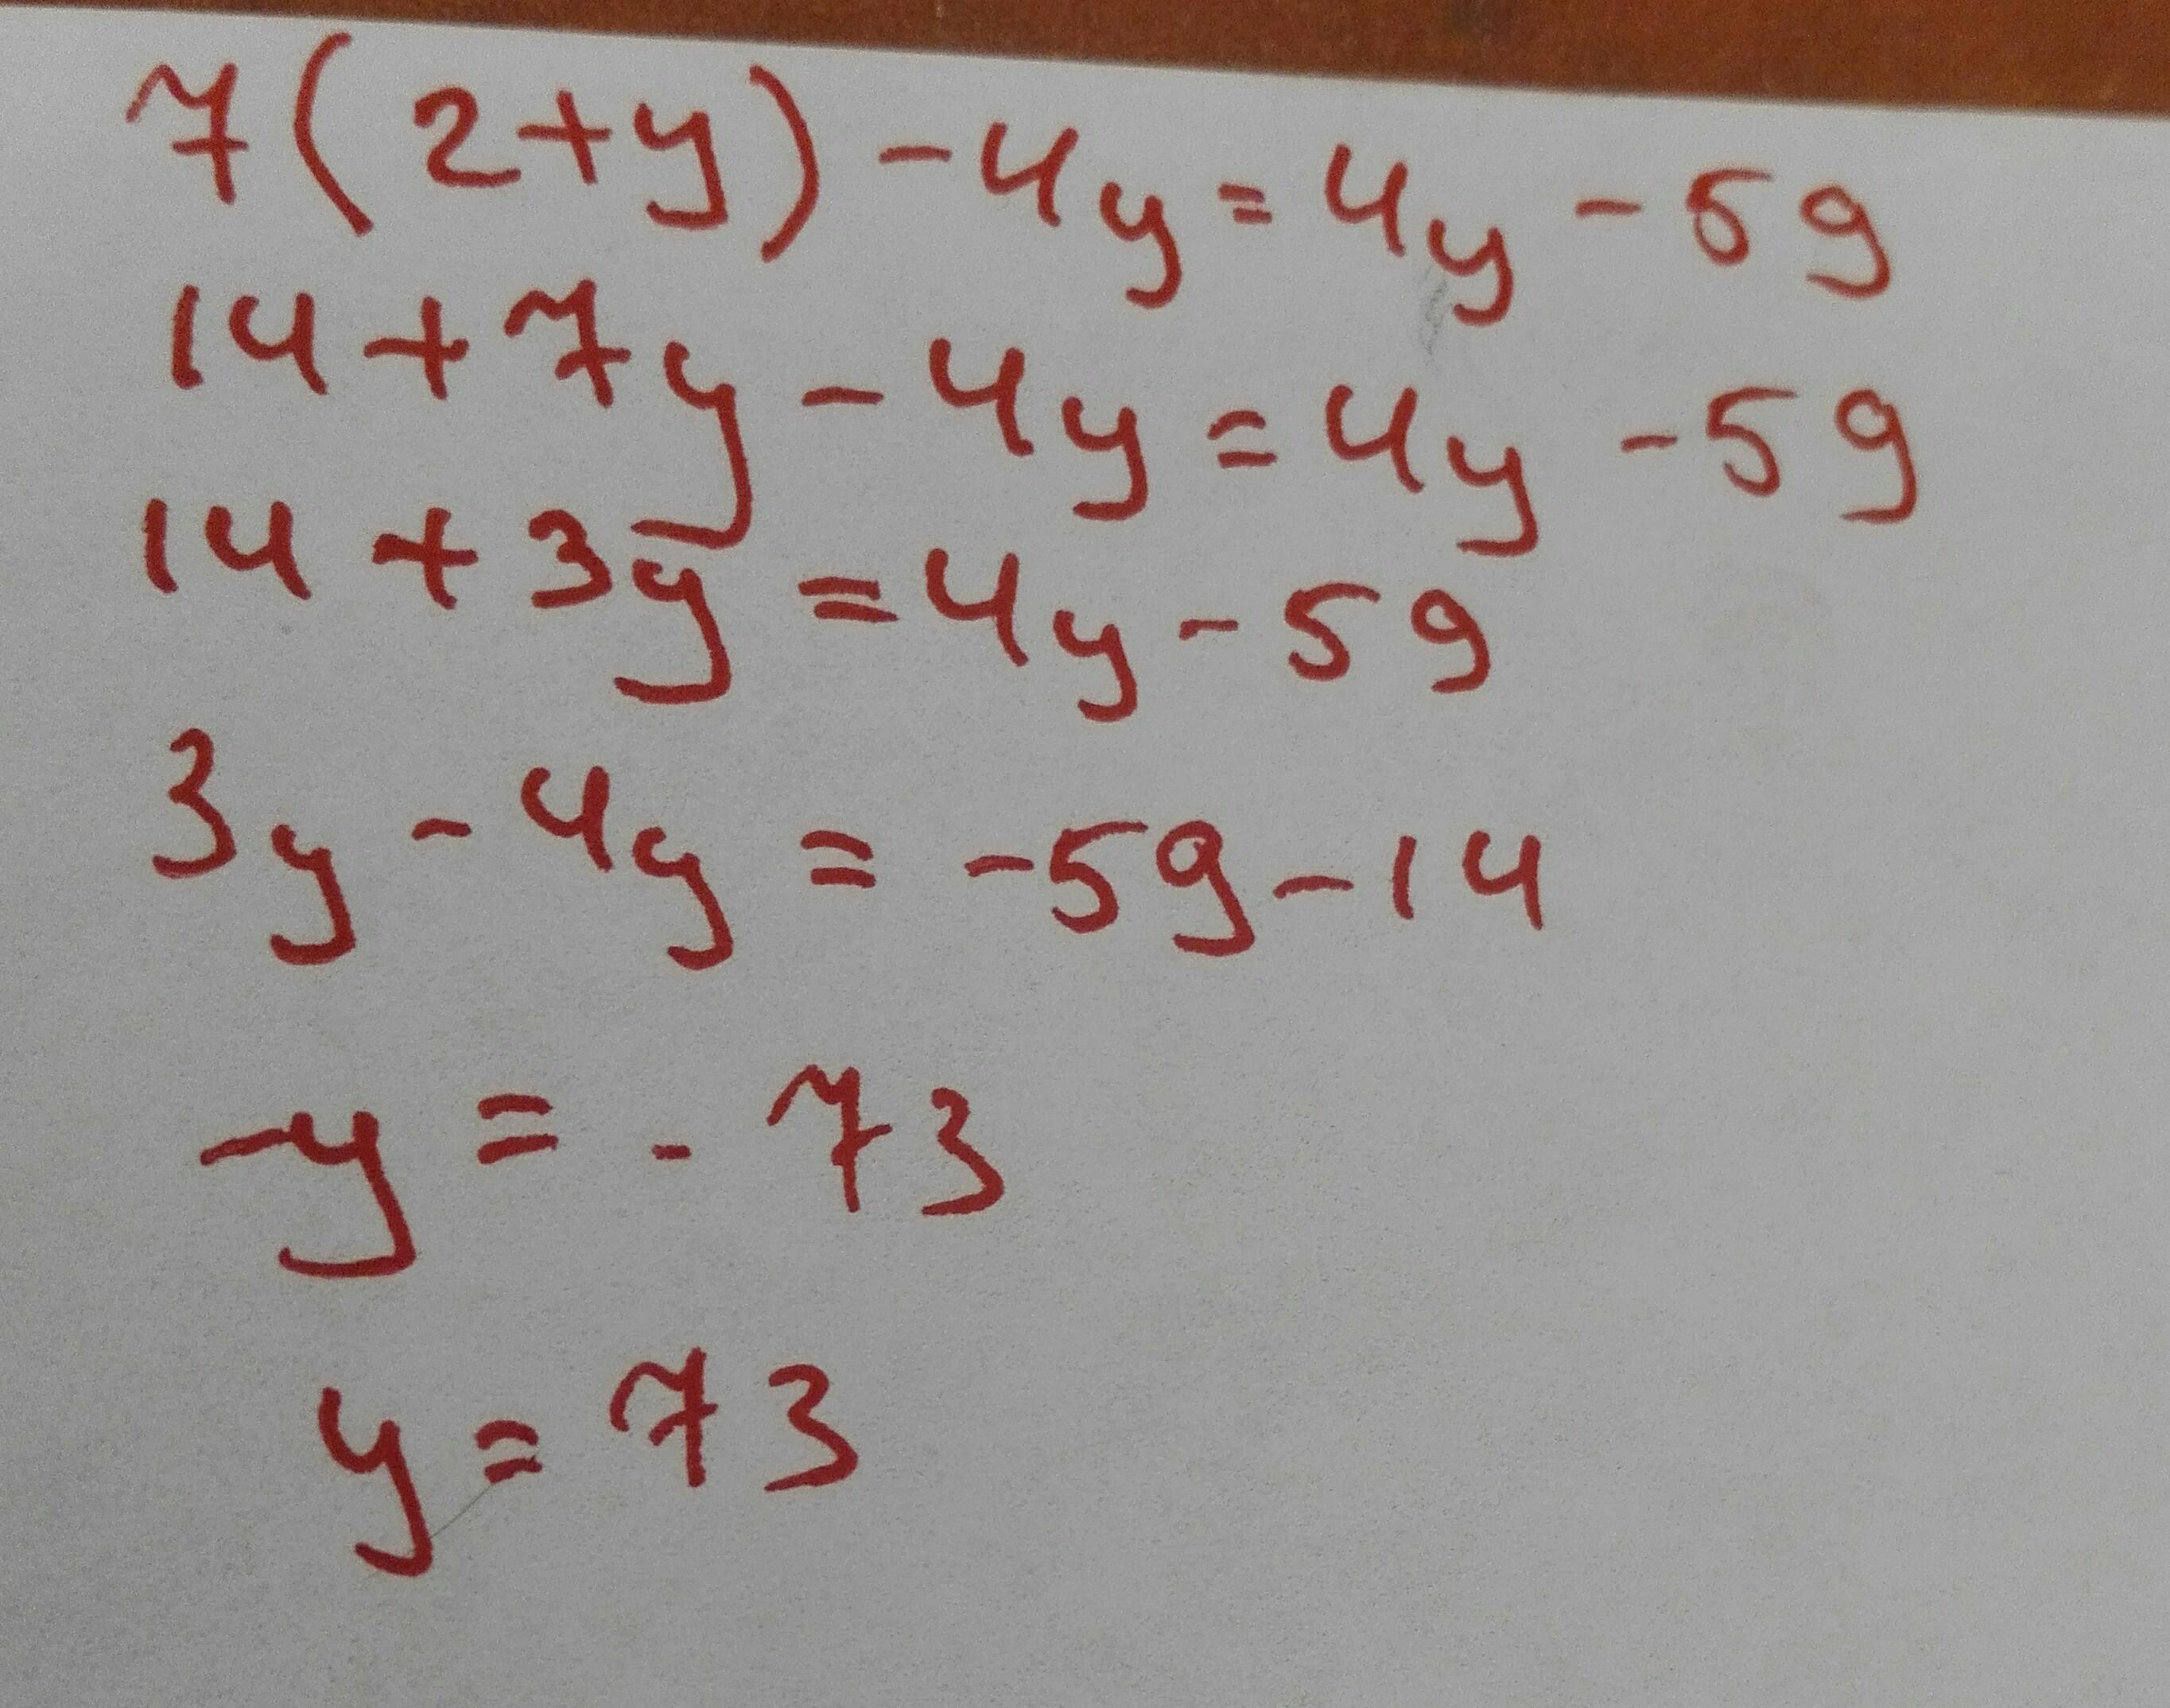 7(2+y)-4y=4y-59
14+7y-4y=4y-59
14+3y=4y-59
3y-4y=-59-14
-y=-73
y=73